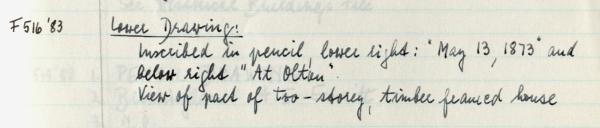 F516 '83 Lower Drawing:
Inscribed in pencil, lower right: "May 13, 1873" and
below right "At Olton".
View of part of two-storey, timber framed house